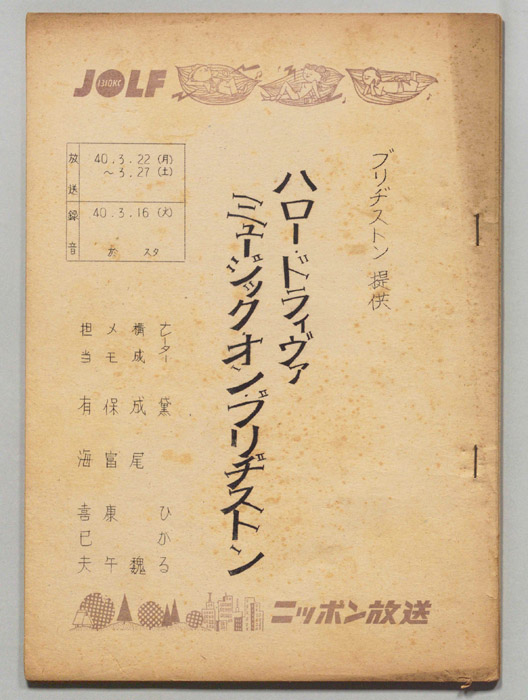 JOLF
1310KC
ブリヂストン 提供
ハロー・ドライヴァ
ミュージック オン・ブリヂストン
放送 40.3.22(月)
〜3.27(土)
録音 40.3.16(火)
スタ
黛 ひかる
構成 成尾 魏
メモ 保富 東午
担当 有海 喜巳夫
ニッポン放送